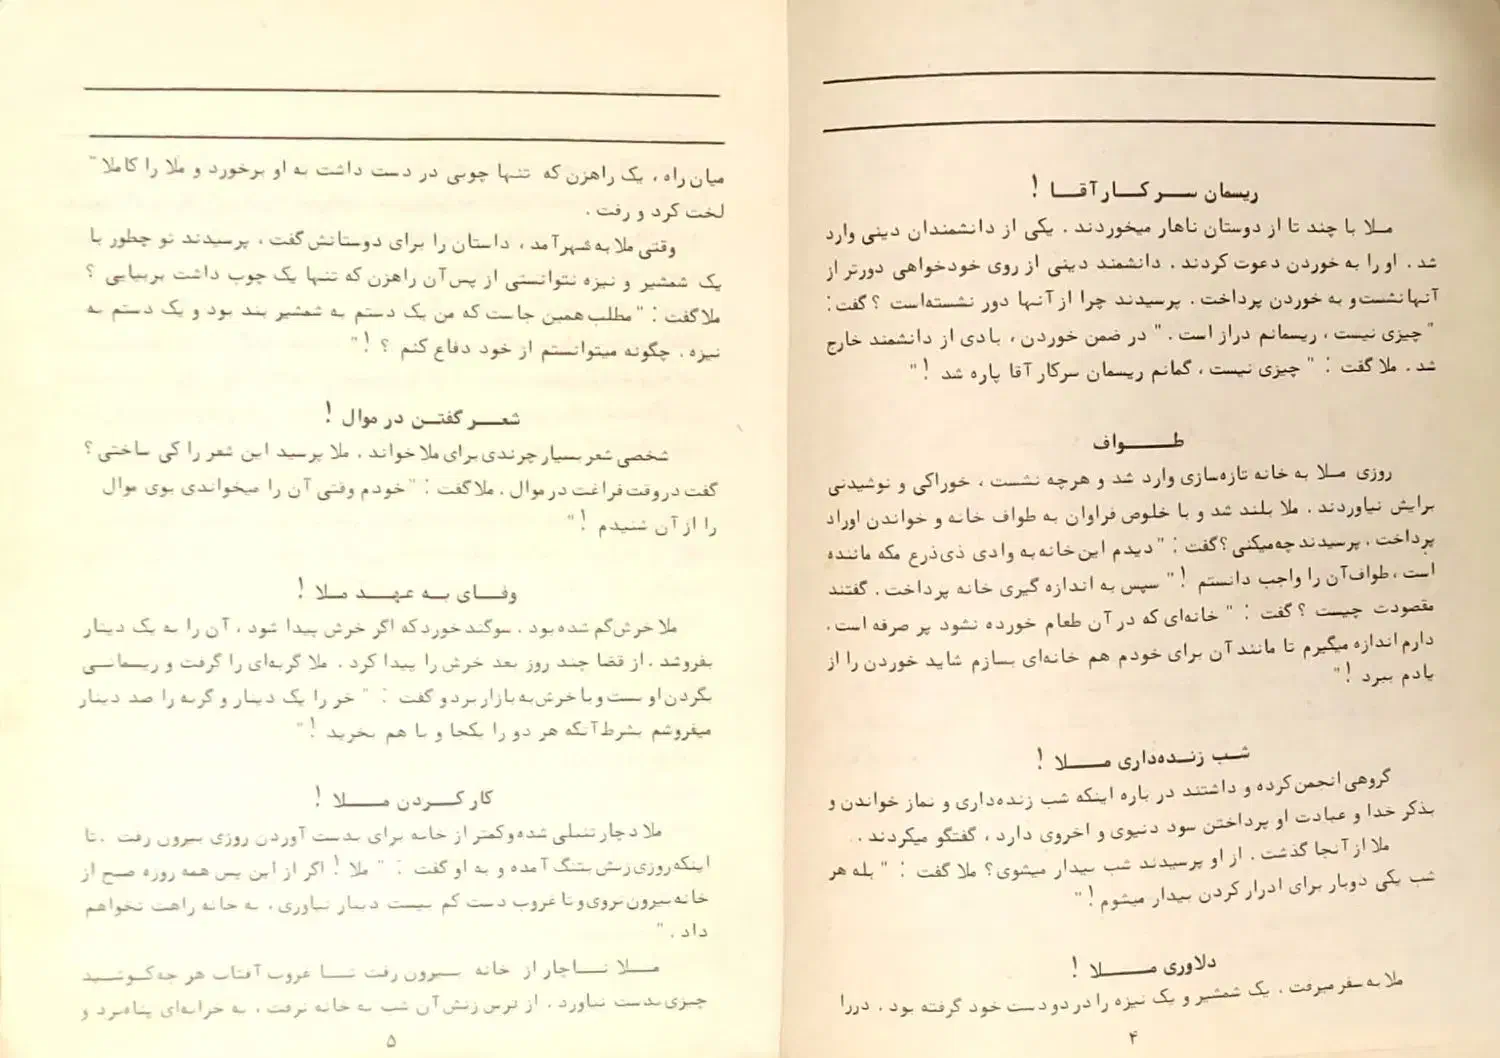 ریسمان سـر کـار آقـا !
مـلا با چند تا از دوستان ناهار میخوردند . یکی از دانشمندان دینی وارد
شد . او را به خوردن دعوت کردند . دانشمند دینی از روی خودخواهی دورتر از
آنها نشست و به خوردن پرداخت . پرسیدند چرا از آنها دور نشسته‌است ؟ گفت :
" چیزی نیست ، ریسمانم دراز است . " در ضمن خوردن ، بادی از دانشمند خارج
شد . ملا گفت : " چیزی نیست ، گمانم ریسمان سرکار آقا پاره شد ! "
طـــواف
روزی مـلا به خانه تازه‌سازی وارد شد و هرچه نشست ، خوراکی و نوشیدنی
برایش نیاوردند . ملا بلند شد و با خلوص فراوان به طواف خانه و خواندن اوراد
پرداخت . پرسیدند چه‌میکنی ؟ گفت : " دیدم این خانه به وادی ذی‌ذرع مکه ماننده
است ، طواف آن را واجب دانستم ! " سپس به اندازه گیری خانه پرداخت . گفتند
مقصودت چیست ؟ گفت : " خانه‌ای که در آن طعام خورده نشود پر صرفه است .
دارم اندازه میگیرم تا مانند آن برای خودم هم خانه‌ای بسازم شاید خوردن را از
یادم ببرد ! "
شـب زنـده‌داری مـــلا !
گروهی انجمن کرده و داشتند در باره اینکه شب زنده‌داری و نماز خواندن و
بذکر خدا و عبادت او پرداختن سود دنیوی و اخروی دارد ، گفتگو میکردند .
ملا از آنجا گذشت . از او پرسیدند شب بیدار میشوی ؟ ملا گفت : " بله هر
شب یکی دوبار برای ادرار کردن بیدار میشوم ! "
دلاوری مــــلا !
ملا به سفر میرفت . یک شمشیر و یک نیزه را در دو دست خود گرفته بود . دررا
۴
میان راه ، یک راهزن که تنها چوبی در دست داشت به او برخورد و ملا را کاملا"
لخت کرد و رفت .
وقتی ملا به شهر آمد ، داستان را برای دوستانش گفت ، پرسیدند تو چطور با
یک شمشیر و نیزه نتوانستی از پس آن راهزن که تنها یک چوب داشت بربیایی ؟
ملا گفت : " مطلب همین جاست که من یک دستم به شمشیر بند بود و یک دستم به
نیزه . چگونه میتوانستم از خود دفاع کنم ؟ ! "
شعـــر گفتــن در موال !
شخصی شعر بسیار چرندی برای ملا خواند . ملا پرسید این شعر را کی ساختی ؟
گفت در وقت فراغت در موال . ملا گفت : " خودم وقتی آن را میخواندی بوی موال
را از آن شنیدم ! "
وفــای بـه عهـد مـلا !
ملا خرش گم شده بود . سوگند خورد که اگر خرش پیدا شود ، آن را به یک دینار
بفروشد . از قضا چند روز بعد خرش را پیدا کرد . ملا گربه‌ای را گرفت و ریسمانـی
بگردن او بست و با خرش به بازار برد و گفت : " خر را یک دینار و گربه را صد دینار
میفروشم بشرط آنکه هر دو را یکجا و با هم بخرید ! "
کار کــردن مـــلا !
ملا دچار تنبلی شده و کمتر از خانه برای بدست آوردن روزی بیرون رفت . تا
اینکه روزی زنش بتنگ آمده و به او گفت : " ملا ! اگر از این پس همه روزه صبح از
خانه بیرون نروی و تا غروب دست کم بیست دینار نیاوری ، به خانه راهت نخواهم
داد . "
مـــلا نـاچار از خانه بیـرون رفت تـا غروب آفتاب هر چه کـوشیـد
چیزی بدست نیاورد . از ترس زنش آن شب به خانه نرفت ، به خرابه‌ای پناه برد و
۵